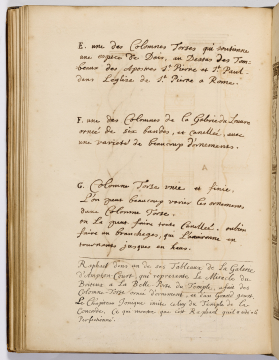 E. une des Colomnes Torses qui soutienne
une espece de Dais, au Dessus des Tom-
beaux des Apostres St. Pierre et St. Paul
dans l'eglise de St. Pierre a Rome.
F. une des Colomnes de la Galerie du Louvre
ornée de six bandes, et Canellée, avec
une varieté de beaucoup d'ornemens.
G. Colomne Torse unie et finie.
L'on peut beaucoup varier les ornemens
d'une Colomne Torse.
on La peut faire toute Canellée, ou bien
faire un branchages, qui L'environne en
tournant jusques en haut.
Raphael dans un de ses Tableaux de la Galerie
d'Ampton Court, qui represente le Miracle du
a La Belle Porte du Temple, a fait des
Colomne Torse ornée d'ornement, et d'un Grand goust,
Le Chapiteau Ionique avec du Temple de la
Concorde, Ce qui montre que c'est Raphael qui